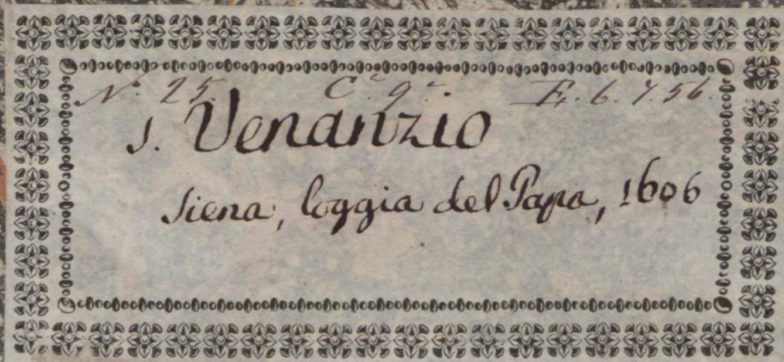 N.° 25. C.ª 9.ª E. 6. 7. 56.
S. Venanzio
Siena, loggia del Papa, 1606